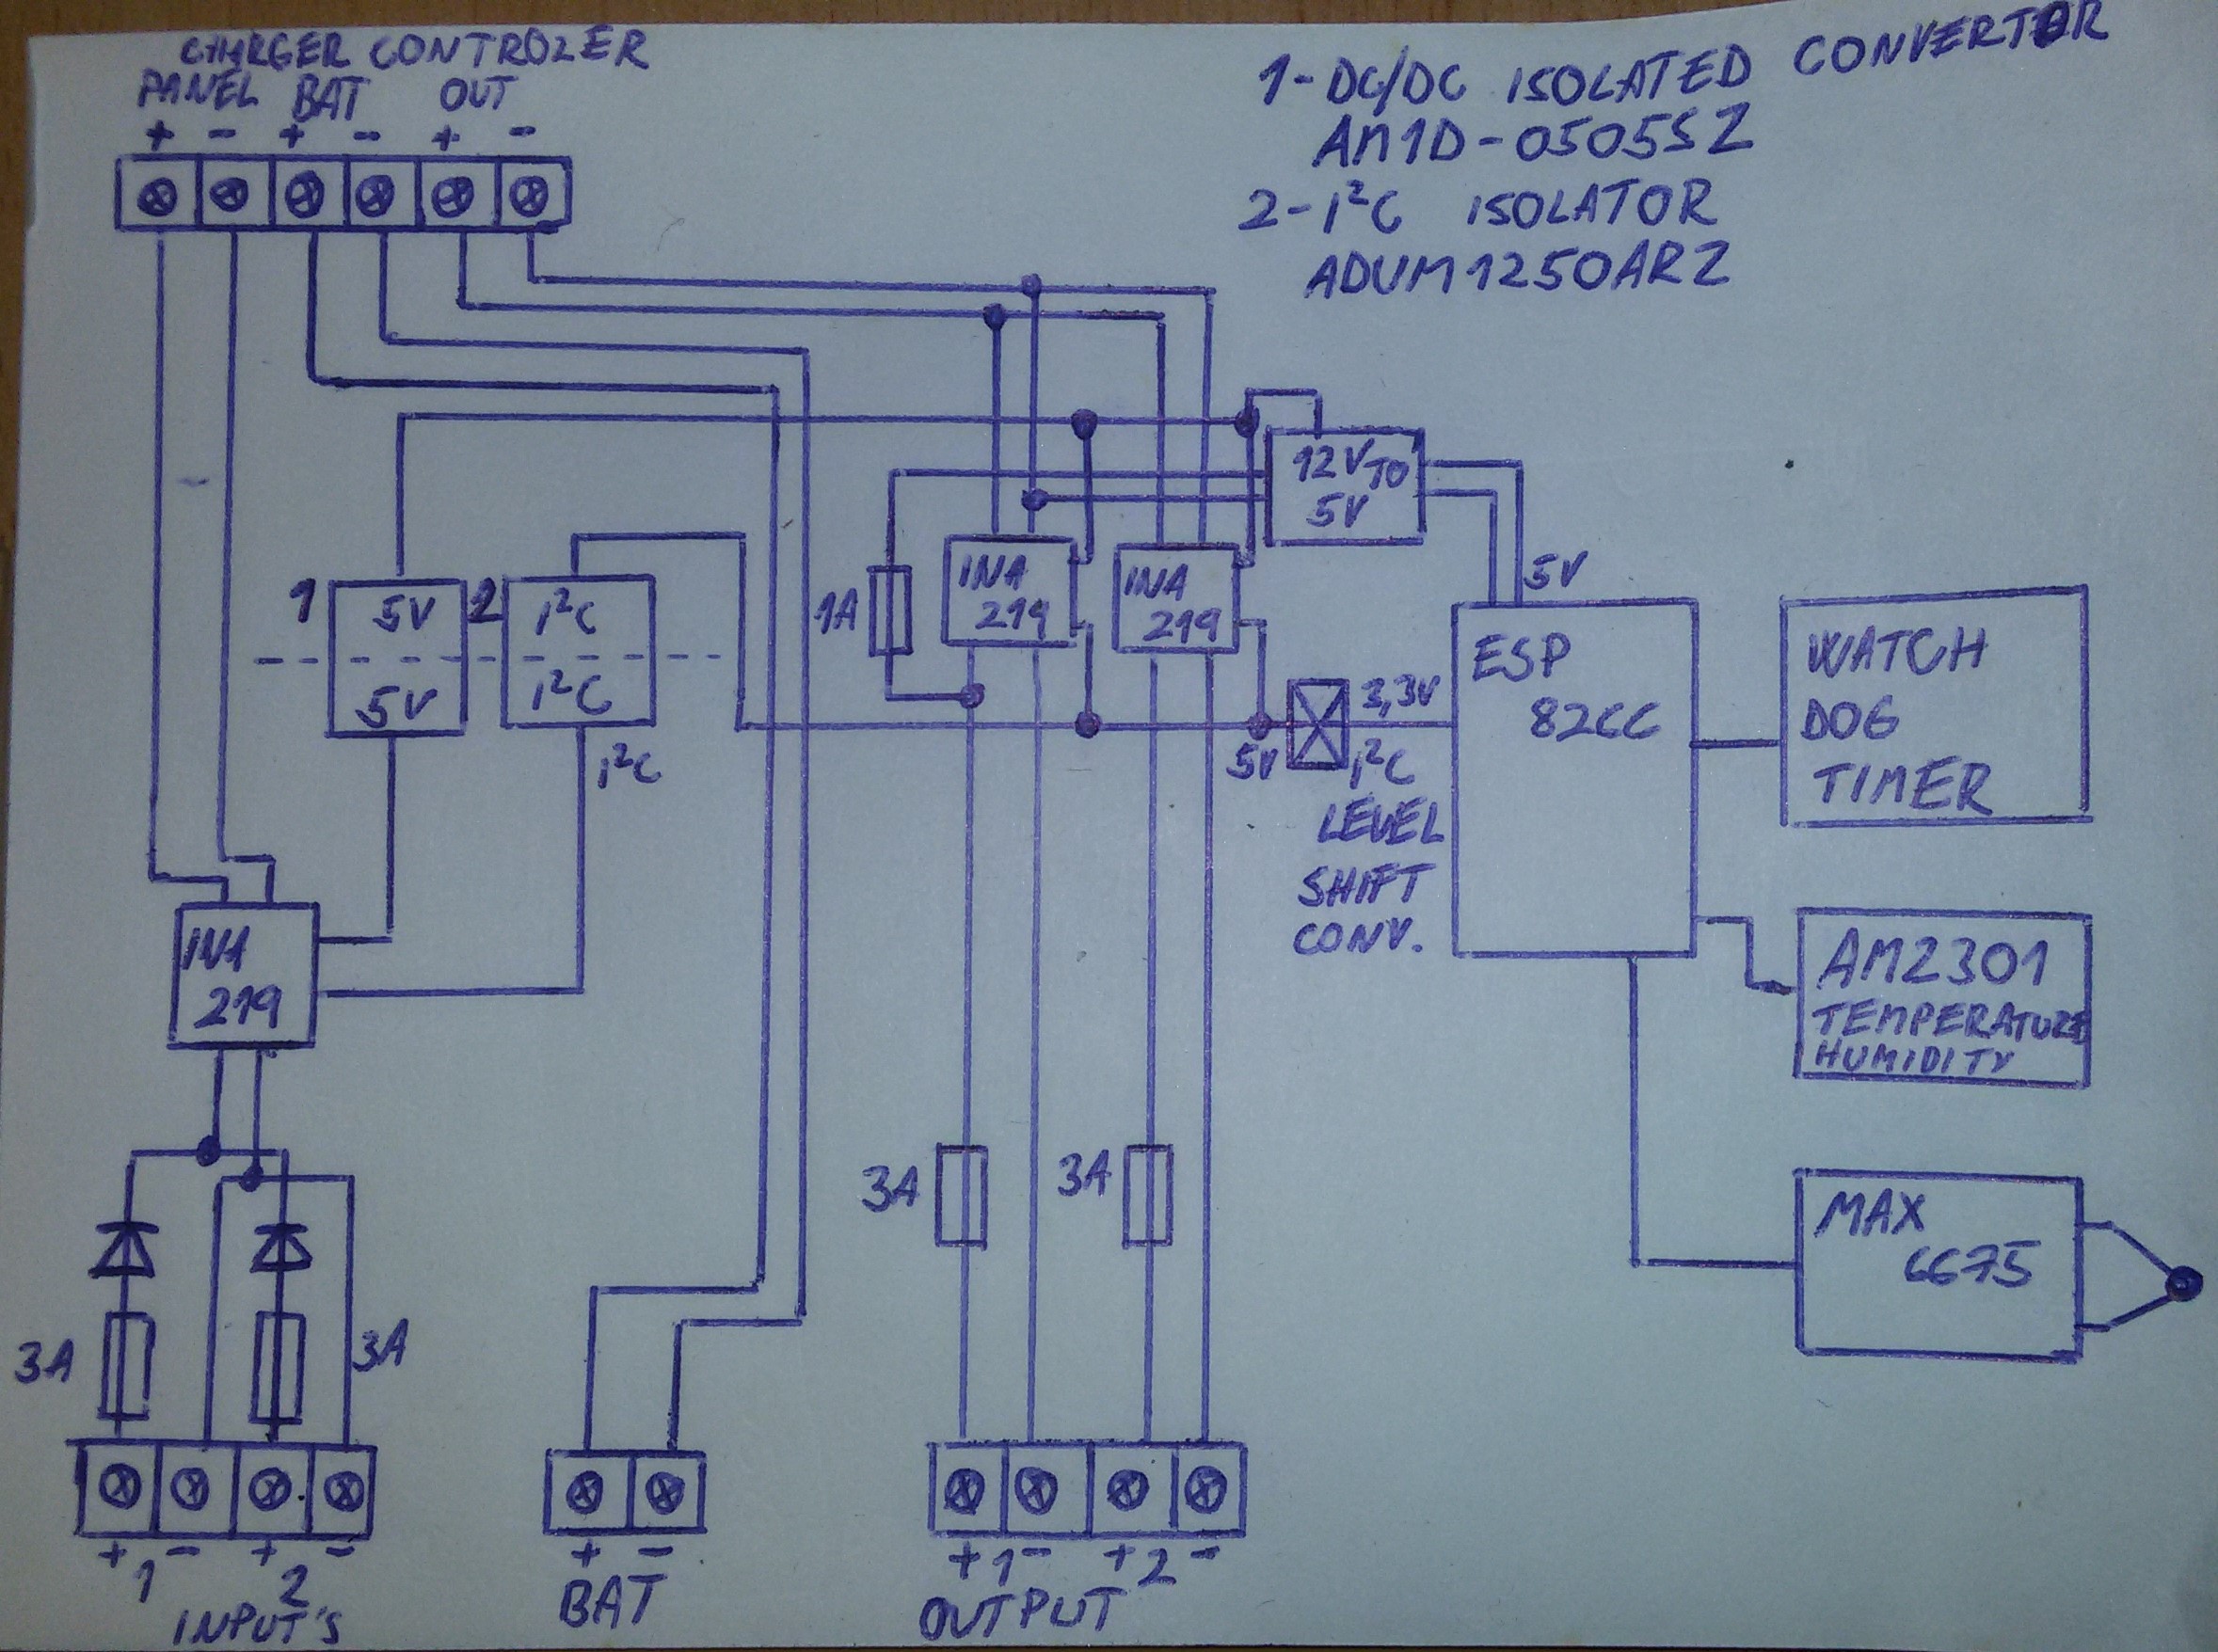 CHARGER CONTROLER
PANEL BAT OUT
+ - + - + -
1-DC/DC ISOLATED CONVERTOR
AM1D-0505SZ
2-I²C ISOLATOR
ADUM1250ARZ
12V TO
5V
5V
1
5V
5V
2
I²C
I²C
I²C
1A
INA
219
INA
219
5V
3,3V
I²C
LEVEL
SHIFT
CONV.
ESP
8266
WATCH
DOG
TIMER
AM2301
TEMPERATURE
HUMIDITY
MAX
6675
INA
219
3A
3A
3A
3A
+ 1 - + 2 -
INPUT'S
+ -
BAT
+ 1 - + 2 -
OUTPUT